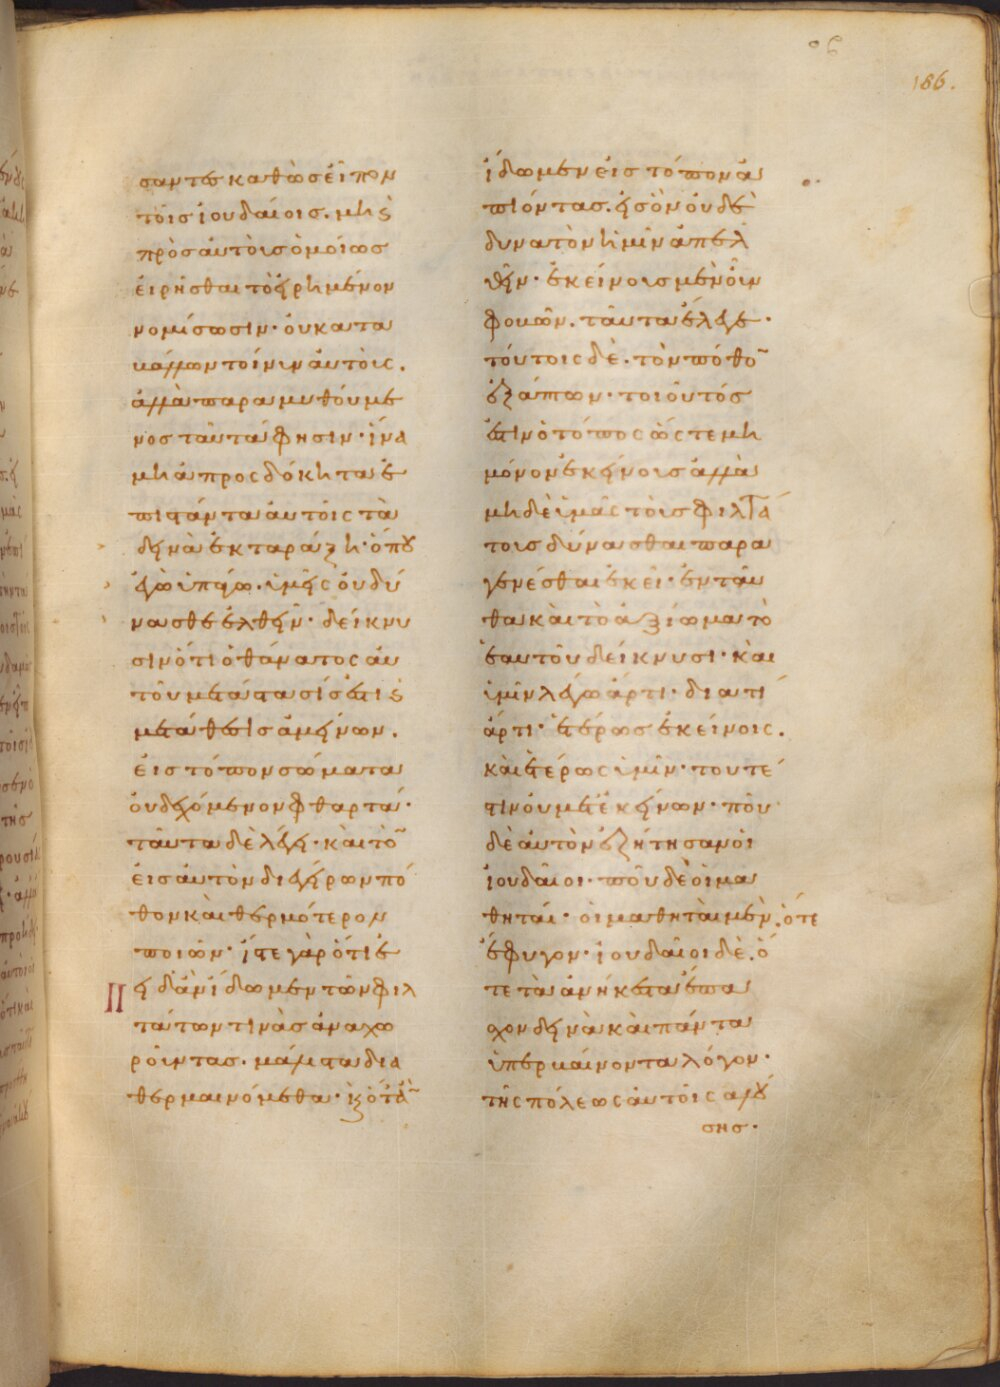 σαντες καθὼς εἶπον
τοῖς ἰουδαίοις. μὴ ϗ
πρὸς αὐτοὺς ὁμοίως
εἰρῆσθαι τὸ εἰρημένον
νομίσωσιν· οὐ κατα
βάλλων τοίνυν αὐτοὺς.
ἀλλὰ παραμυθούμε
νος ταῦτά φησιν· ἵνα
μὴ ἀπροσδόκητα ἐ
πιστάντα αὐτοῖς τὰ
δεινὰ ἐκταράξη· ὅπου
ἐγὼ ὑπάγω. ὑμεῖς οὐ δύ
νασθε ἐλθεῖν· δείκνυ
σιν ὅτι ὁ θάνατος αὐ
τοῦ μετάστασίς ἐστι ϗ
μετάθεσις ἀμείνων.
εἰς τόπον σώματα
οὐ δεχόμενον φθαρτά·
ταῦτα δὲ λέγει· καὶ τὸν
εἰς αὐτὸν διεγείρων πό
θον καὶ θερμότερον
ποιῶν· ἴστε γὰρ ὅτι ἐ
Πειδὰν ἴδωμεν τῶν φιλ
τάτων τινὰς ἀναχω
ροῦντας. μάλιστα δια
θερμαινόμεθα· ϗ ὅταν
ἴδωμεν εἰς τόπον ἀ
πιόντας. εἰς ὃν οὐδὲ
δυνατὸν ἡμῖν ἀπελ
θεῖν· ἐκείνοις μὲν οὖν
φοβῶν. ταῦτα ἔλεγε·
τούτοις δὲ. τὸν πόθον
ἐξάπτων· τοιοῦτός
ἐστιν ὁ τόπος ὡς τε μὴ
μόνον ἐκείνοις ἀλλὰ
μηδὲ ὑμᾶς τοῖς φιλτά
τοις δύνασθαι παρα
γενέσθαι ἐκεῖ· ἐνταῦ
θα καὶ τὸ ἀξίωμα τὸ
ἑαυτοῦ δείκνυσι· καὶ
ὑμῖν λέγω ἄρτι· διατί
ἄρτι· ἑτέρως ἐκείνοις.
καὶ ἑτέρως ὑμῖν· τουτέ
στιν οὐ μετ' ἐκείνων· ποῦ
δὲ αὐτὸν ἐζήτησαν οἱ
ἰουδαῖοι· ποῦ δὲ οἱ μα
θηταί· οἱ μαθηταὶ μὲν. ὅτε
ἔφυγον· ἰουδαῖοι δὲ. ὅ
τε τὰ ἀνήκεστα ἔπα
σχον δεινὰ καὶ πάντα
ὑπερβαίνοντα λόγον·
τῆς πόλεως αὐτοῖς ἁλού
σης·
186.